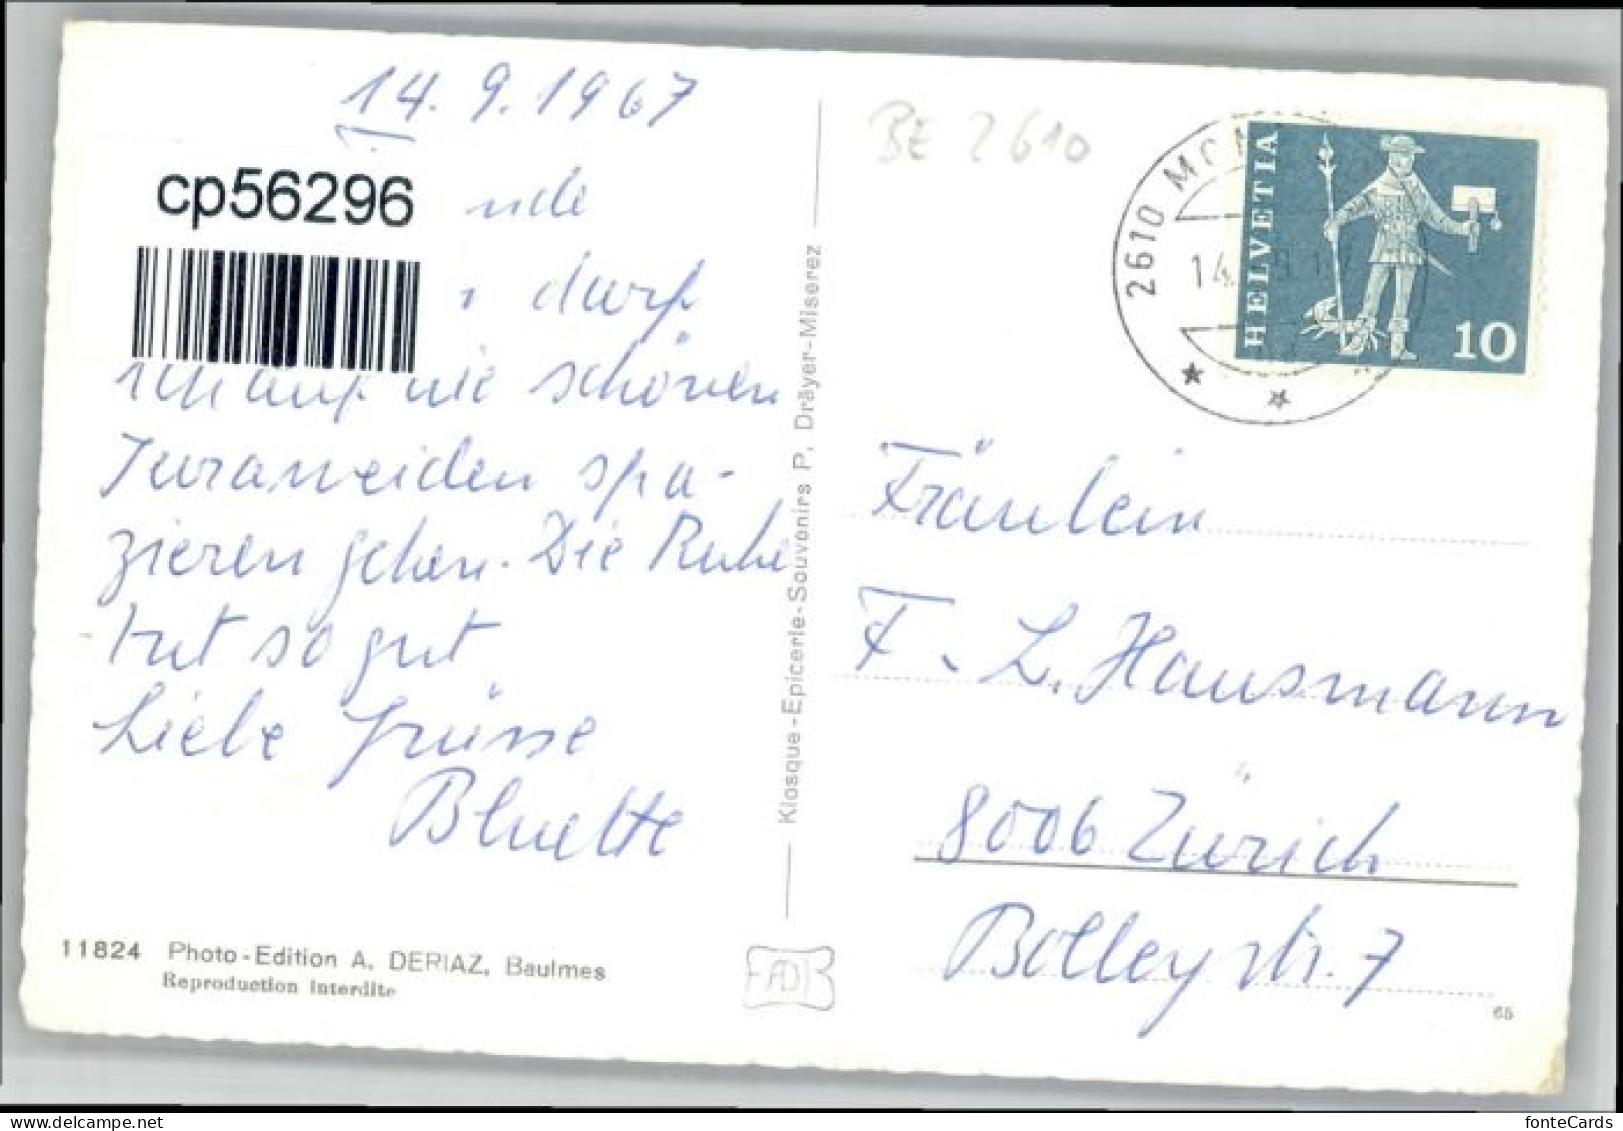 14. 9. 1967
cp56296
darf
ich auf die schönen
Juraweiden spa-
zieren gehen. Die Ruhe
tut so gut
Liebe Grüsse
Bluette
11824 Photo-Edition A. DERIAZ, Baulmes
Reproduction interdite
Kiosque-Epicerie-Souvenirs P. Dräyer-Miserez
BE 2610
2610
14.
HELVETIA
10
Fräulein
F. L. Hausmann
8006 Zürich
Bolleystr. 7
65
www.delcampe.net
fonteCards